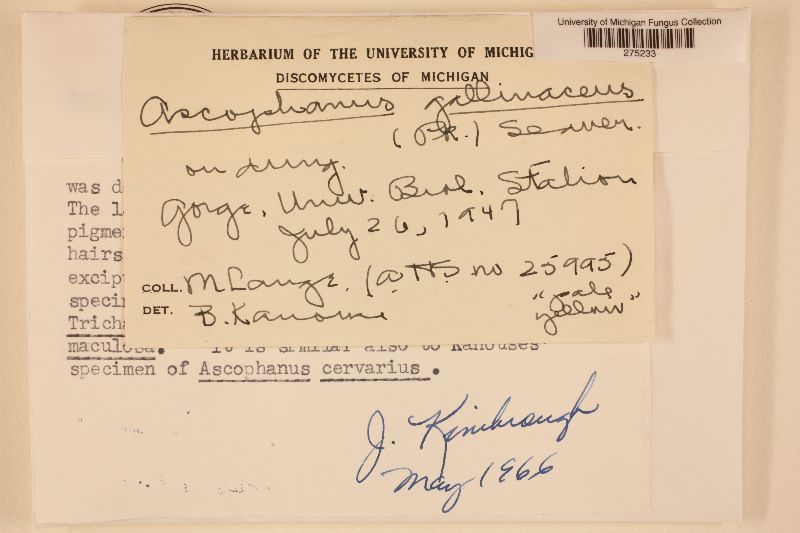 University of Michigan Fungus Collection
275233
HERBARIUM OF THE UNIVERSITY OF MICHIG
DISCOMYCETES OF MICHIGAN
Ascophanus gallinaceus
(Pk.) Seaver.
on dung.
Gorge, Univ. Biol. Station
July 26, 1947
COLL. M Lange. (A.H.S. no 25995)
DET. B. Kanouse
"pale
yellow"
was d
The l
pigme
hairs
excip
speci
Tricha
maculosa. It is similar also to Kanouses
specimen of Ascophanus cervarius.
J. Kimbrough
May 1966